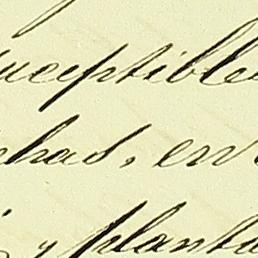 uceptible
chas, en
y planta